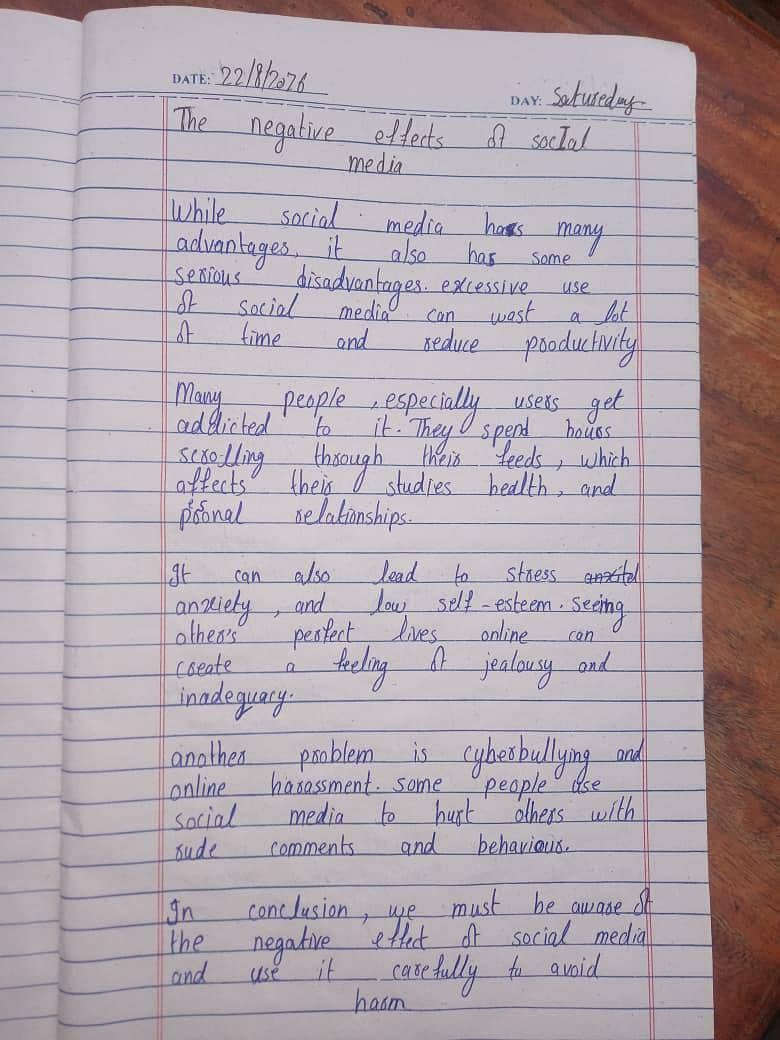 DATE: 22/8/2026
DAY: Satureday
The negative effects of social
media
While social media has many
advantages, it also has some
serious disadvantages. excessive use
of social media can wast a lot
of time and reduce productivity
Many people, especially users get
addicted to it. They spend hours
scrolling through their feeds, which
affects their studies health, and
prsonal relationships.
It can also lead to stress
anxiety, and low self-esteem. Seeing
other's perfect lives online can
create a feeling of jealousy and
inadequacy.
another problem is cyberbullying and
online harassment. some people use
social media to hurt others with
rude comments and behaviour.
In conclusion, we must be aware of
the negative effect of social media
and use it carefully to avoid
harm